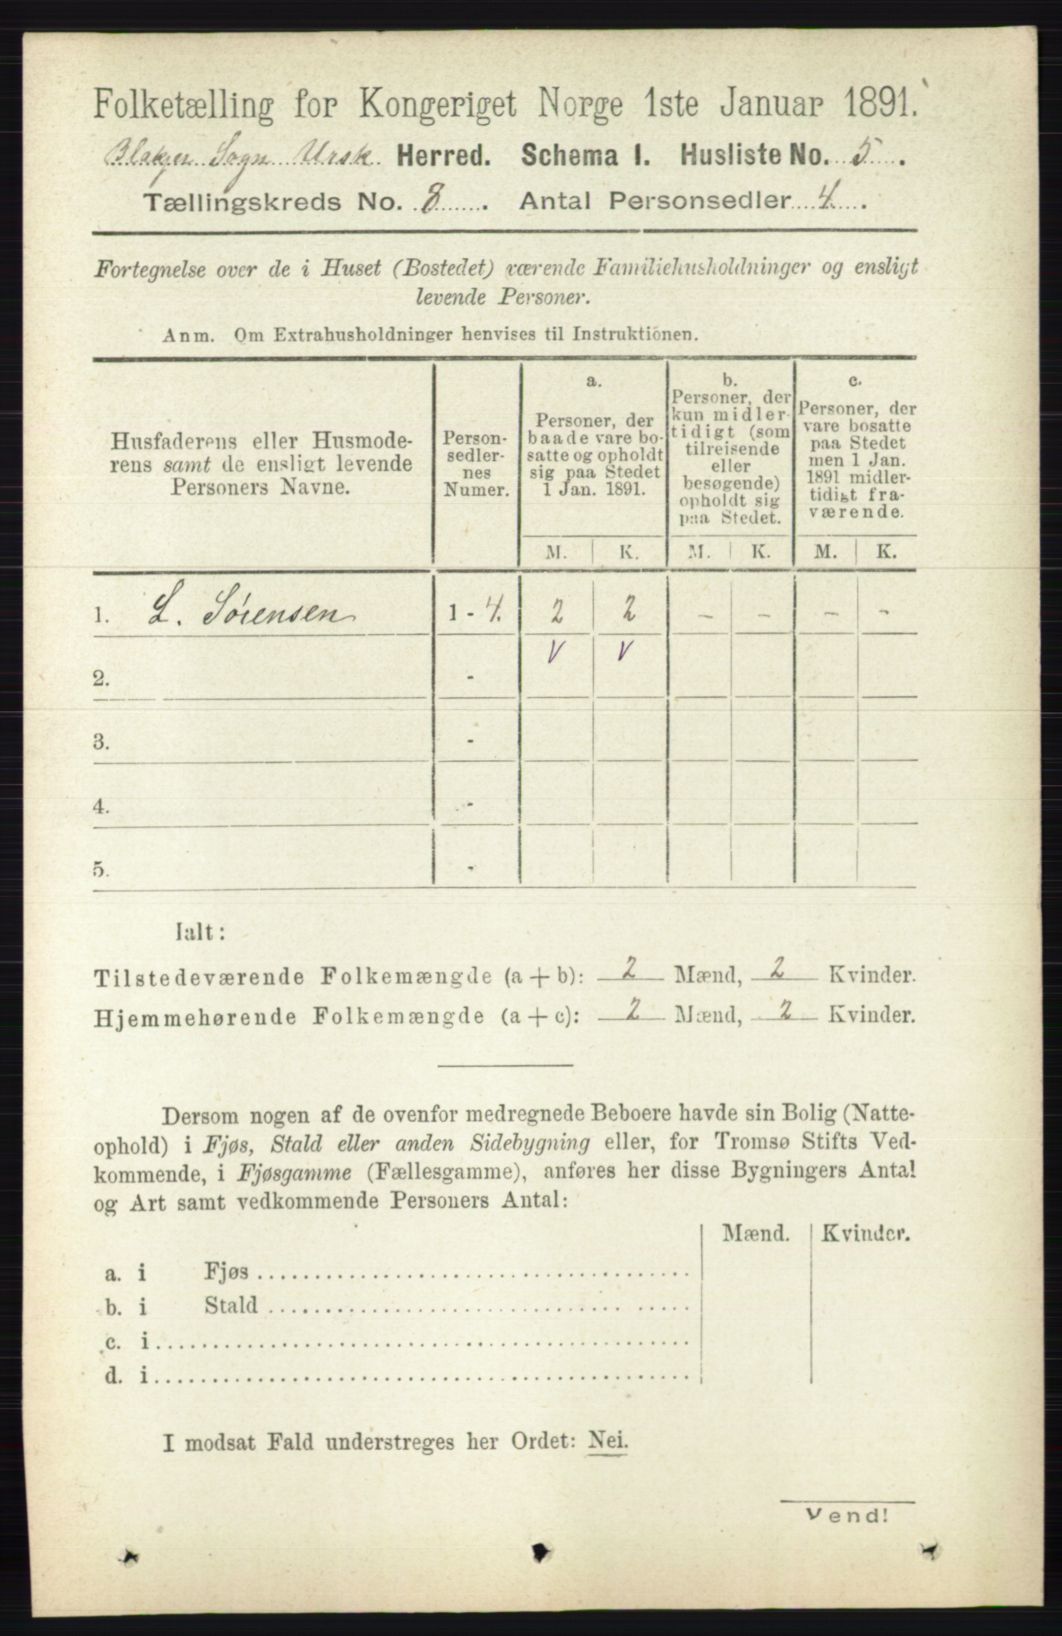 Folketælling for Kongeriget Norge 1ste Januar 1891.
Blakjer Sogn Ursk Herred. Schema I. Husliste No. 5.
Tællingskreds No. 8. Antal Personsedler 4.
Fortegnelse over de i Huset (Bostedet) værende Familiehusholdninger og ensligt
levende Personer.
Anm. Om Extrahusholdninger henvises til Instruktionen.
Husfaderens eller Husmode-
rens samt de ensligt levende
Personers Navne.
Person-
sedler-
nes
Numer.
a.
Personer, der
baade vare bo-
satte og opholdt
sig paa Stedet
1 Jan. 1891.
b.
Personer, der
kun midler-
tidigt (som
tilreisende
eller
besøgende)
opholdt sig
paa Stedet.
c.
Personer, der
vare bosatte
paa Stedet
men 1 Jan.
1891 midler-
tidigt fra-
værende.
M. K. M. K. M. K.
1. L. Sørensen 1 - 4. 2 2 - - - -
2. - V V
3. -
4. -
5. -
Ialt:
Tilstedeværende Folkemængde (a + b): 2 Mænd, 2 Kvinder.
Hjemmehørende Folkemængde (a + c): 2 Mænd, 2 Kvinder.
Dersom nogen af de ovenfor medregnede Beboere havde sin Bolig (Natte-
ophold) i Fjøs, Stald eller anden Sidebygning eller, for Tromsø Stifts Ved-
kommende, i Fjøsgamme (Fællesgamme), anføres her disse Bygningers Antal
og Art samt vedkommende Personers Antal:
Mænd. Kvinder.
a. i Fjøs
b. i Stald
c. i
d. i
I modsat Fald understreges her Ordet: Nei.
Vend!